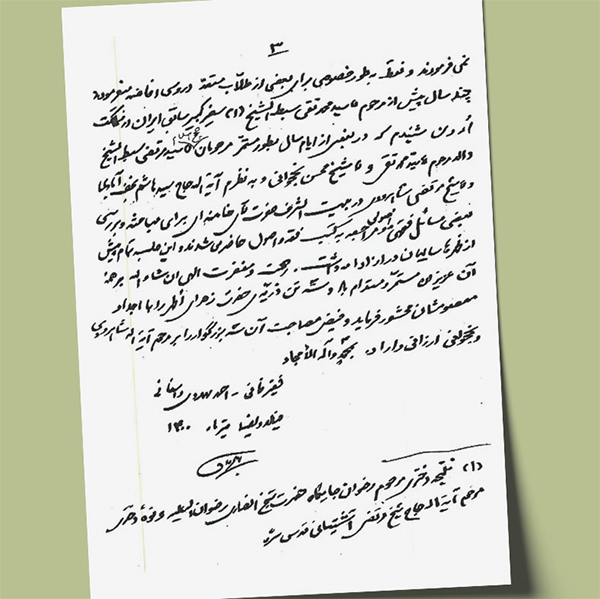 ۳
نمی فرمودند و فقط به طور خصوصی برای بعضی از طلّاب مستعد دروسی افاضه میفرمودند
چند سال پیش از مرحوم آقا سید محمد تقی سبط الشیخ (۱) سفیر کبیر سابق ایران در مملکت
اردن شنیدم که در بعضی از ایام سال بطور مستمر مرحومان آقا سید مرتضی سبط الشیخ
والد مرحوم آقا سید محمد تقی و آقا شیخ محسن نخجوانی و به نظرم آیة الله حاج سید هاشم نجف آبادی
و آقا شیخ مرتضی شاهرودی در بیت الشرف حضرت آقای خامنه ای برای مباحثه و بررسی
بعضی مسائل فقهی و اصولی کتب فقه و اصول حاضر می شدند و این جلسه تمام پیش
از ظهر تا سالیان دراز ادامه داشت. رحمت و مغفرت الهی ان شاء الله بر همهٔ
آن عزیزان مستمر و مستدام باد و سه تن ذریّه ی حضرت زهرای اطهر را با اجداد
معصومشان محشور فرماید و فیض مصاحبت آن سه بزرگوار را بر مرحوم آیة الله شاهرودی
و نخجوانی ارزانی دارد. بمحمّد و آله الأمجاد
فقیر فانی - احمد مهدوی دامغانی
فیلادلفیا تیرماه ۱۴۰۰
(۱) نتیجه دختری مرحوم رضوان جایگاه حضرت شیخ انصاری رضوان الله علیه و نوهٔ دختری
مرحوم آیة الله حاج شیخ مرتضی آشتیانی قدس سرّه